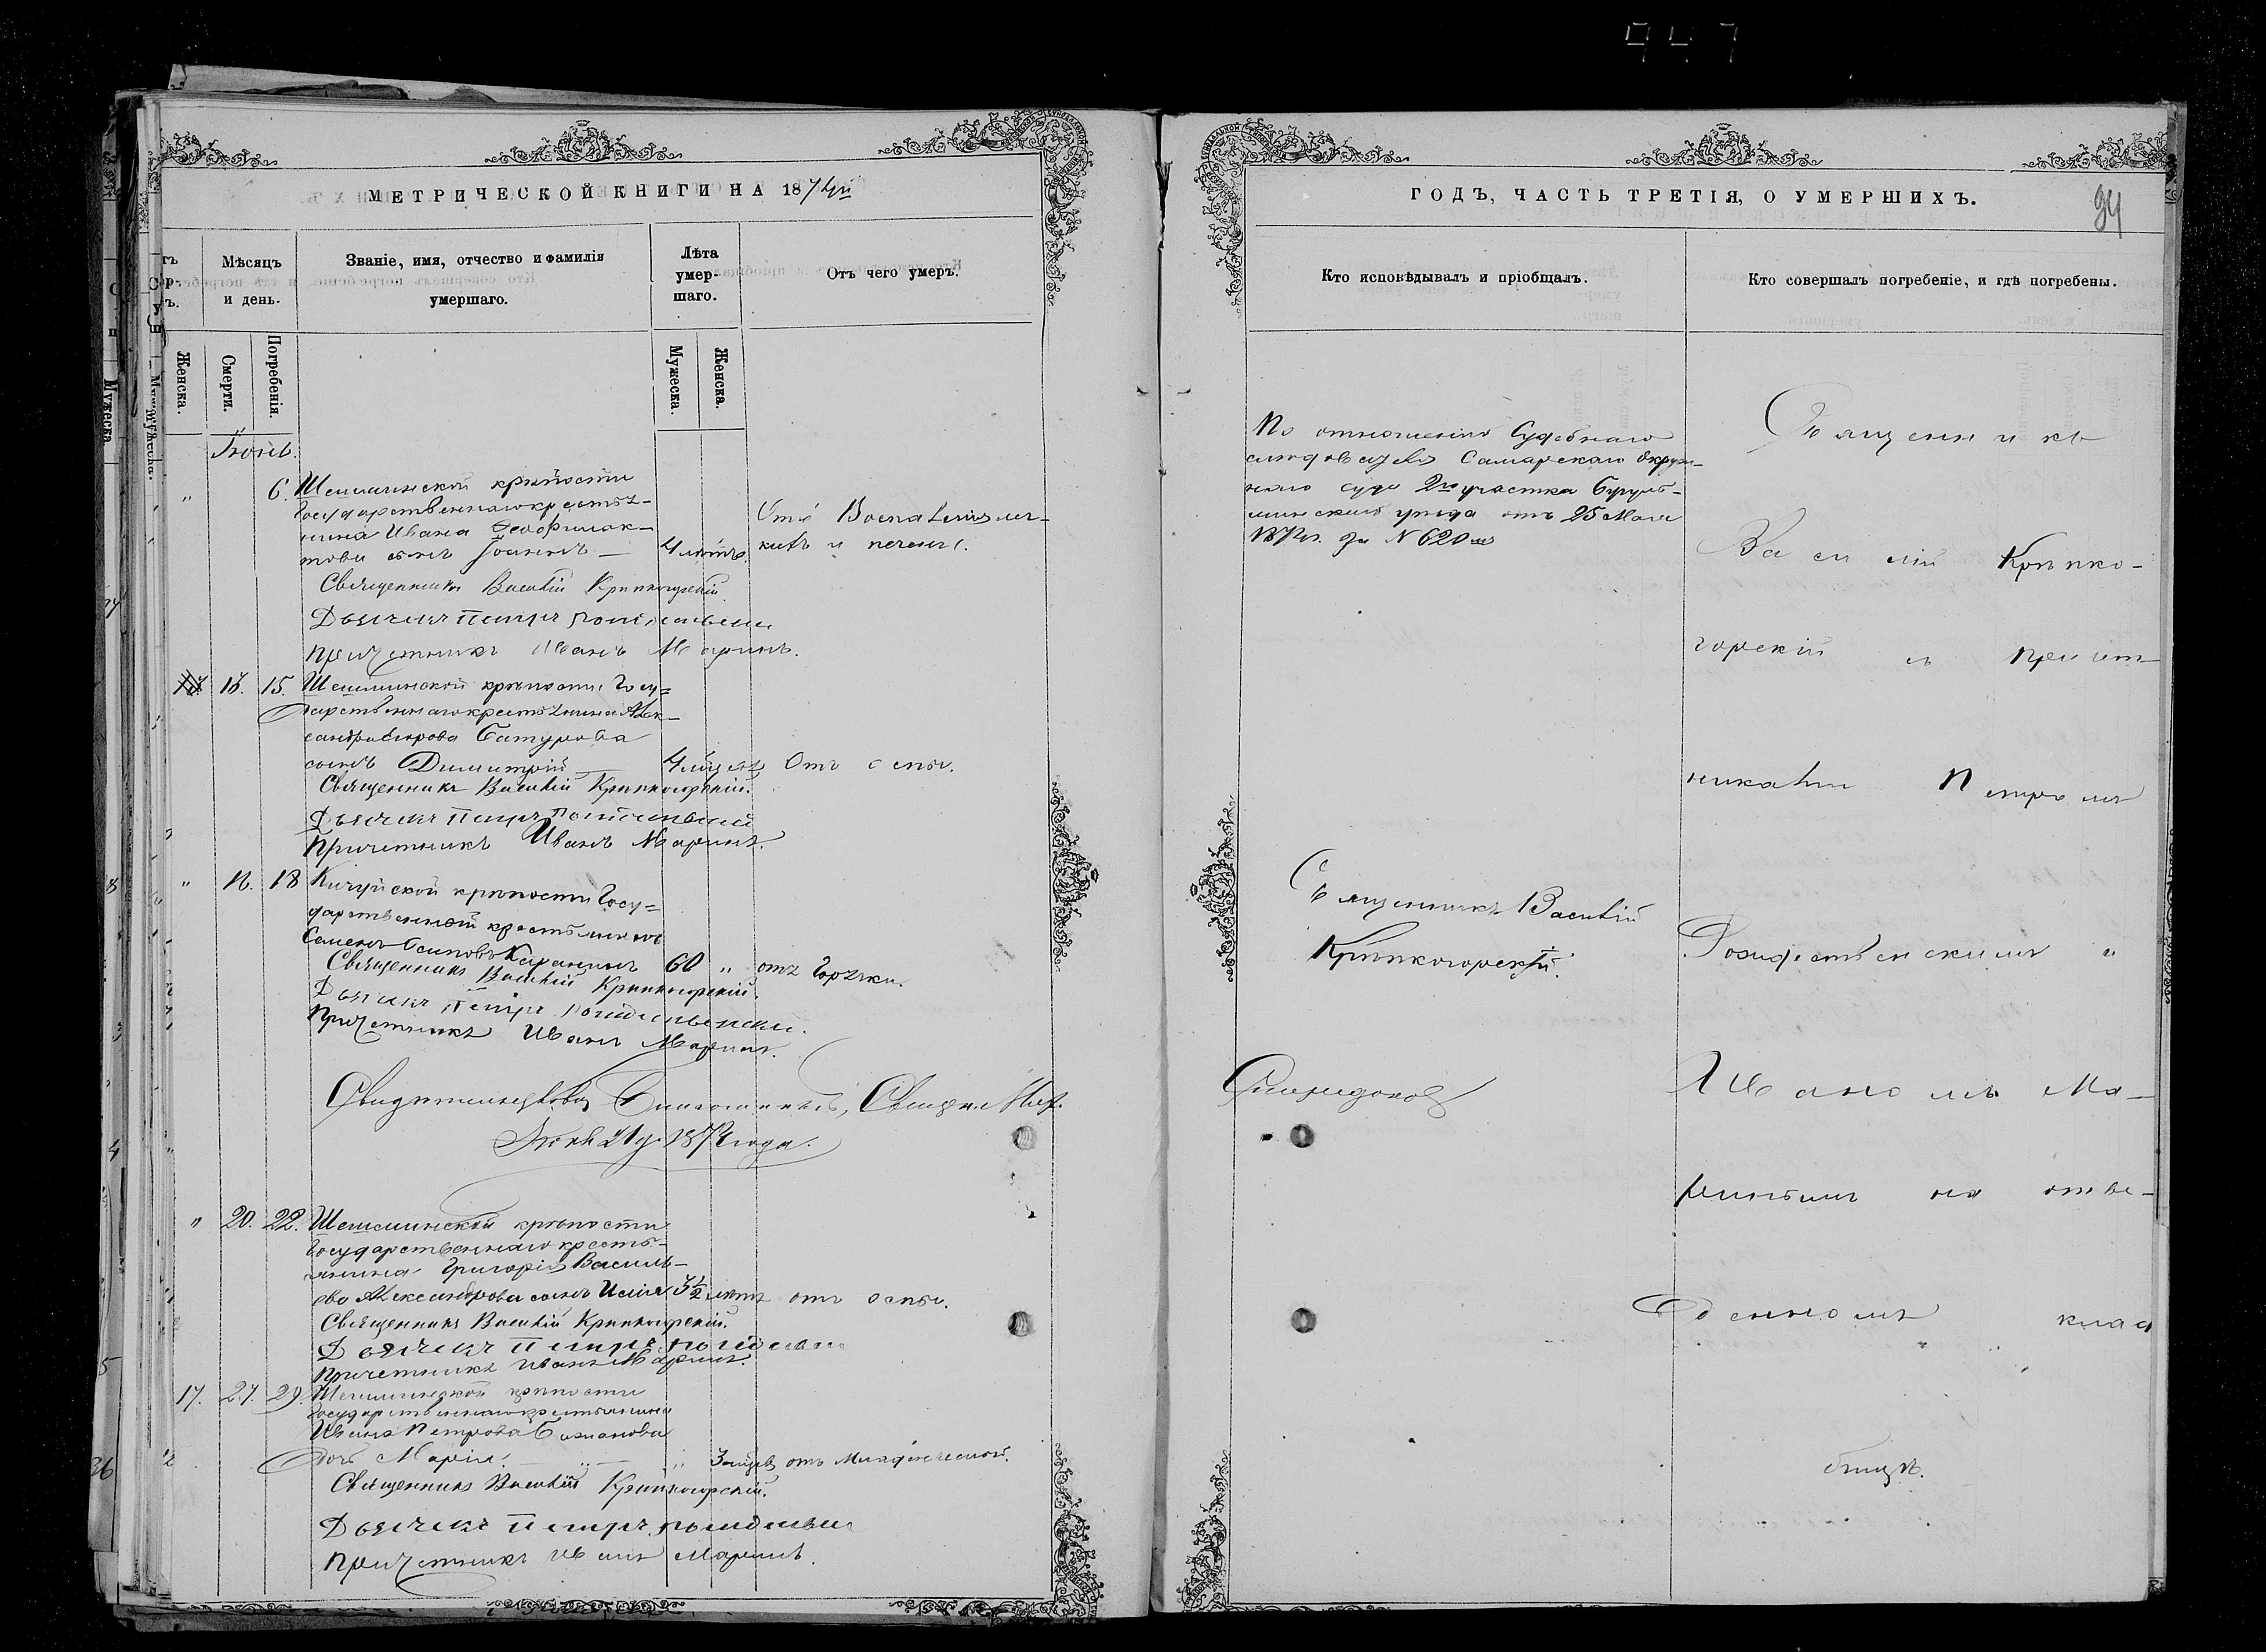 947
МЕТРИЧЕСКОЙ КНИГИ НА 1874й
Мѣсяцъ и день.
Званіе, имя, отчество и фамилія умершаго.
Лѣта умершаго.
Отъ чего умеръ.
Женска.
Смерти.
Погребенія.
Мужеска.
Женска.
Іюнь.
" 6. Шешминской крѣпости
Государственнаго крестья-
нина Ивана Феофилак-
това сынъ Іоаннъ — 4 лѣтъ.
Отъ Воспаленія лег-
кихъ и печени.
Священникъ Василій Крѣпкогорскій.
Дьячекъ Петръ
Причетникъ Иванъ Маринъ.
13. 15. Шешминской крѣпости Госу=
дарственнаго крестьянина Алек-
сандра Егорова Батурова
сынъ Димитрій 4 мѣсяц. Отъ оспы.
Священникъ Василій Крѣпкогорскій.
Дьячекъ Петръ
Причетникъ Иванъ Маринъ.
" 16. 18 Кичуйской крѣпости Госу=
дарственной крестьянинъ
Семенъ Осиповъ 60 " отъ Горячки.
Священникъ Василій Крѣпкогорскій.
Дьячекъ Петръ
Причетникъ Иванъ Маринъ.
Свидѣтельствовалъ Благочинный, Священ. Мих.
Іюня 21 д. 1874 года.
" 20. 22. Шешминской крѣпости
Государственнаго кресть-
янина Григорія Василь-
ева Александрова сынъ Илія 3½ лѣтъ отъ оспы.
Священникъ Василій Крѣпкогорскій.
Дьячекъ Петръ
Причетникъ Иванъ Маринъ.
17. 27. 29. Шешминской крѣпости
Государственнаго крестьянина
Ивана Петрова
дочь Марія. " 3 мѣсяц отъ Младенческой.
Священникъ Василій Крѣпкогорскій.
Дьячекъ Петръ
Причетникъ Иванъ Маринъ.
ГОДЪ, ЧАСТЬ ТРЕТІЯ, О УМЕРШИХЪ.
94
Кто исповѣдывалъ и пріобщалъ.
Кто совершалъ погребеніе, и гдѣ погребены.
По отношенію Судебнаго
слѣдователя Самарскаго Окруж-
наго суда 2го участка Бугуль-
минскаго уѣзда отъ 25 Мая
1874г. за N 620
Священникъ Василій
Крѣпкогорскій.
Спиридонов
Священникъ
Василій Крѣпко-
горскій съ причет-
никами Петромъ
Рождественскимъ и
Иваномъ Ма-
ринымъ на отве-
денномъ клад
бищѣ.